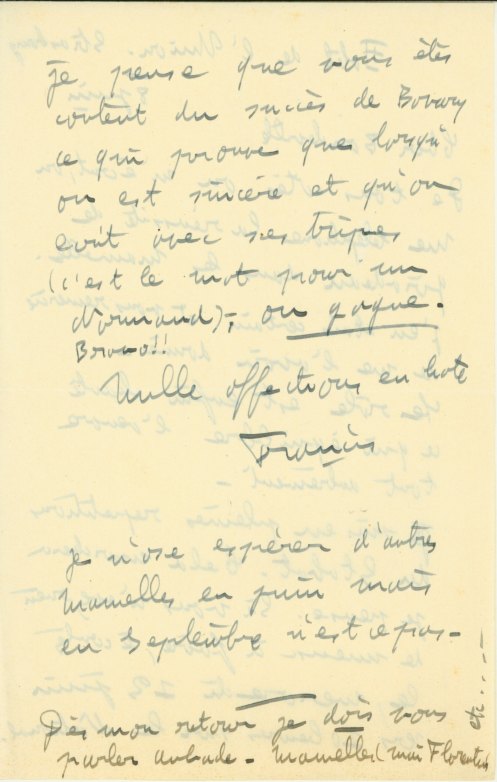 Je pense que vous êtes
content du succès de Bovary
ce qui prouve que lorsqu'
on est sincère et qu'on
écrit avec ses tripes
(c'est le mot pour un
Normand), on gagne.
Bravo!!
Mille affections en hâte
Francis
je n'ose espérer d'autres
Mamelles en juin mais
en Septembre n'est ce pas -
Dès mon retour je dois vous
parler aubade - Mamelles (mai Florentin
etc